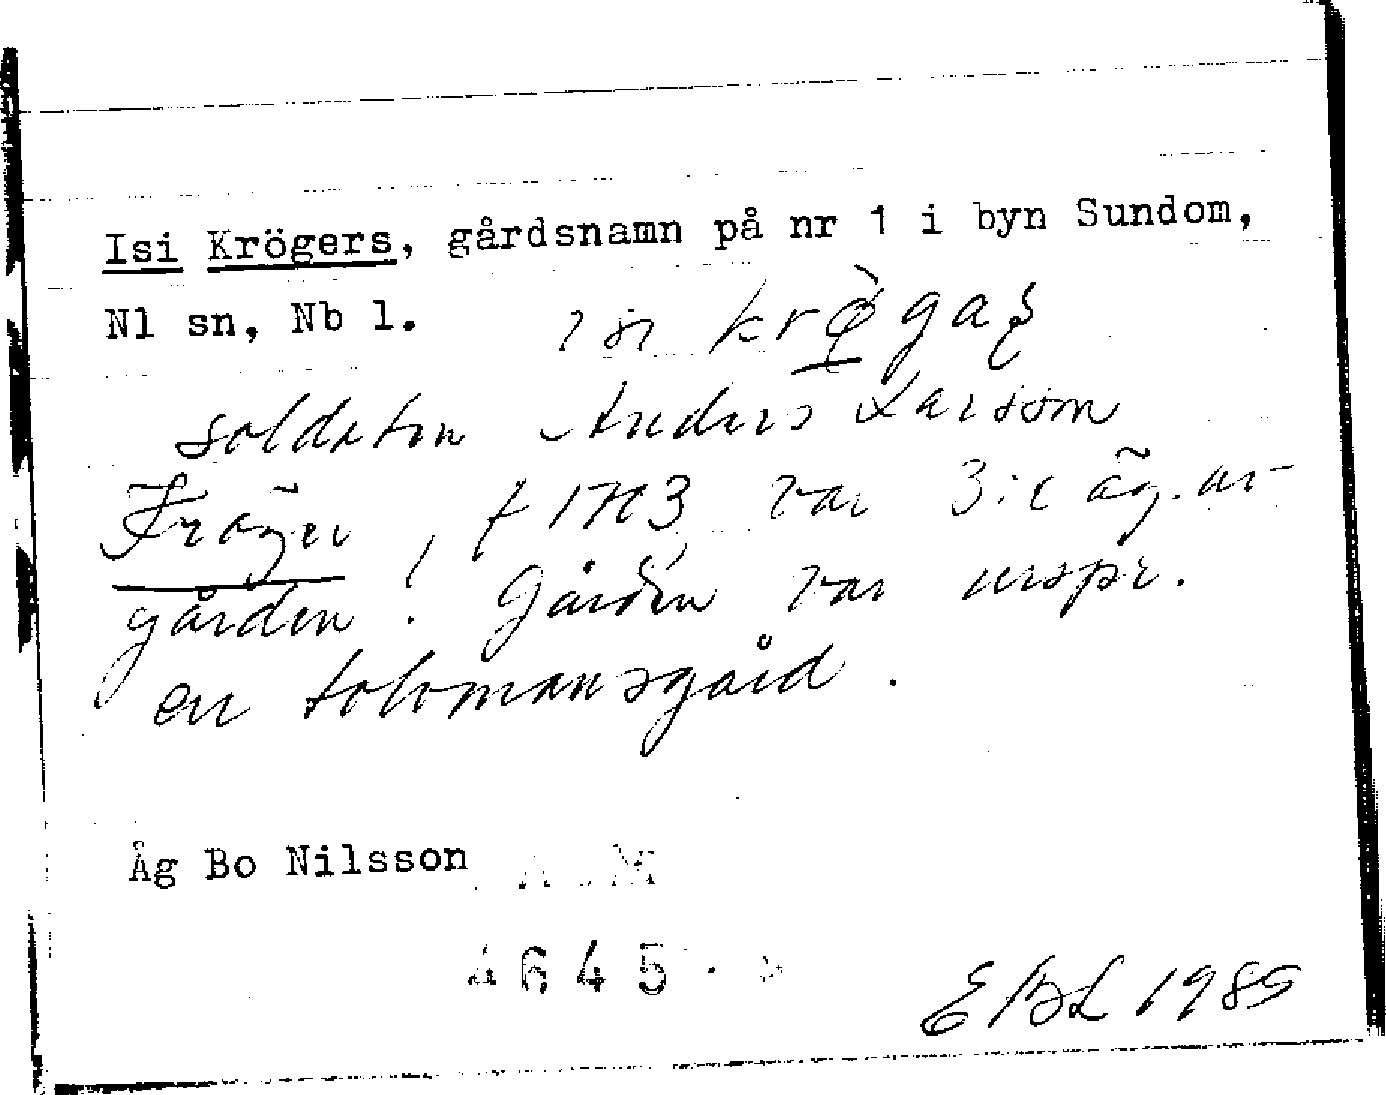 Isi Krögers, gårdsnamn på nr 1 i byn Sundom,
Nl sn, Nb l.
soldaten Anders Larsson
Kröger, f 1763 var 3:e äg. av
gården. Gården var urspr.
en tolvmansgård.
Åg Bo Nilsson
4645
EBL 1985